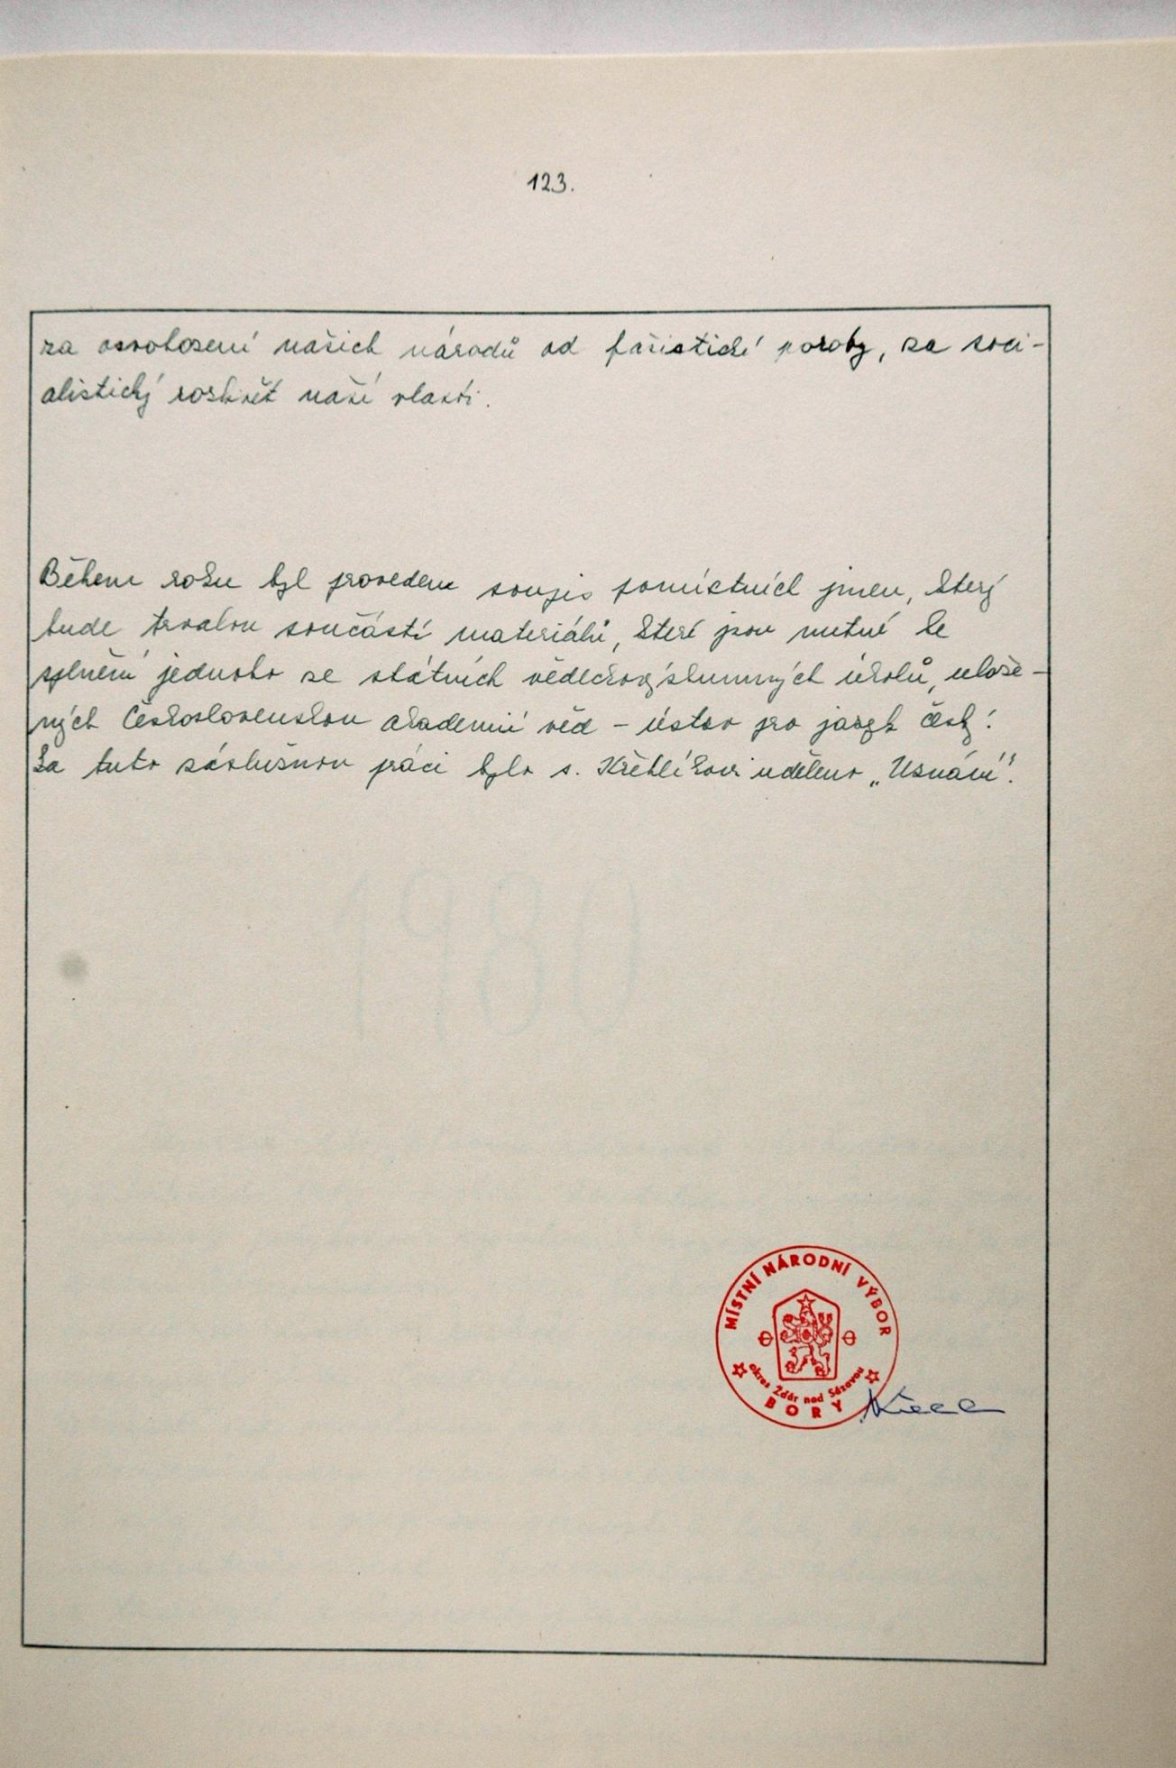 123.
za osvobození našich národů od fašistické poroby, za soci-
alistický rozkvět naší vlasti.
Během roku byl proveden soupis pomístních jmen, který
bude trvalou součástí materiálů, které jsou nutné ke
splnění jednoho ze státních vědeckovýzkumných úkolů, ulože-
ných Československou akademií věd - ústav pro jazyk český.
Za tuto záslužnou práci bylo s. Křehlíkovi uděleno „Uznání“.
1980
MÍSTNÍ NÁRODNÍ VÝBOR
okres Žďár nad Sázavou
BORY